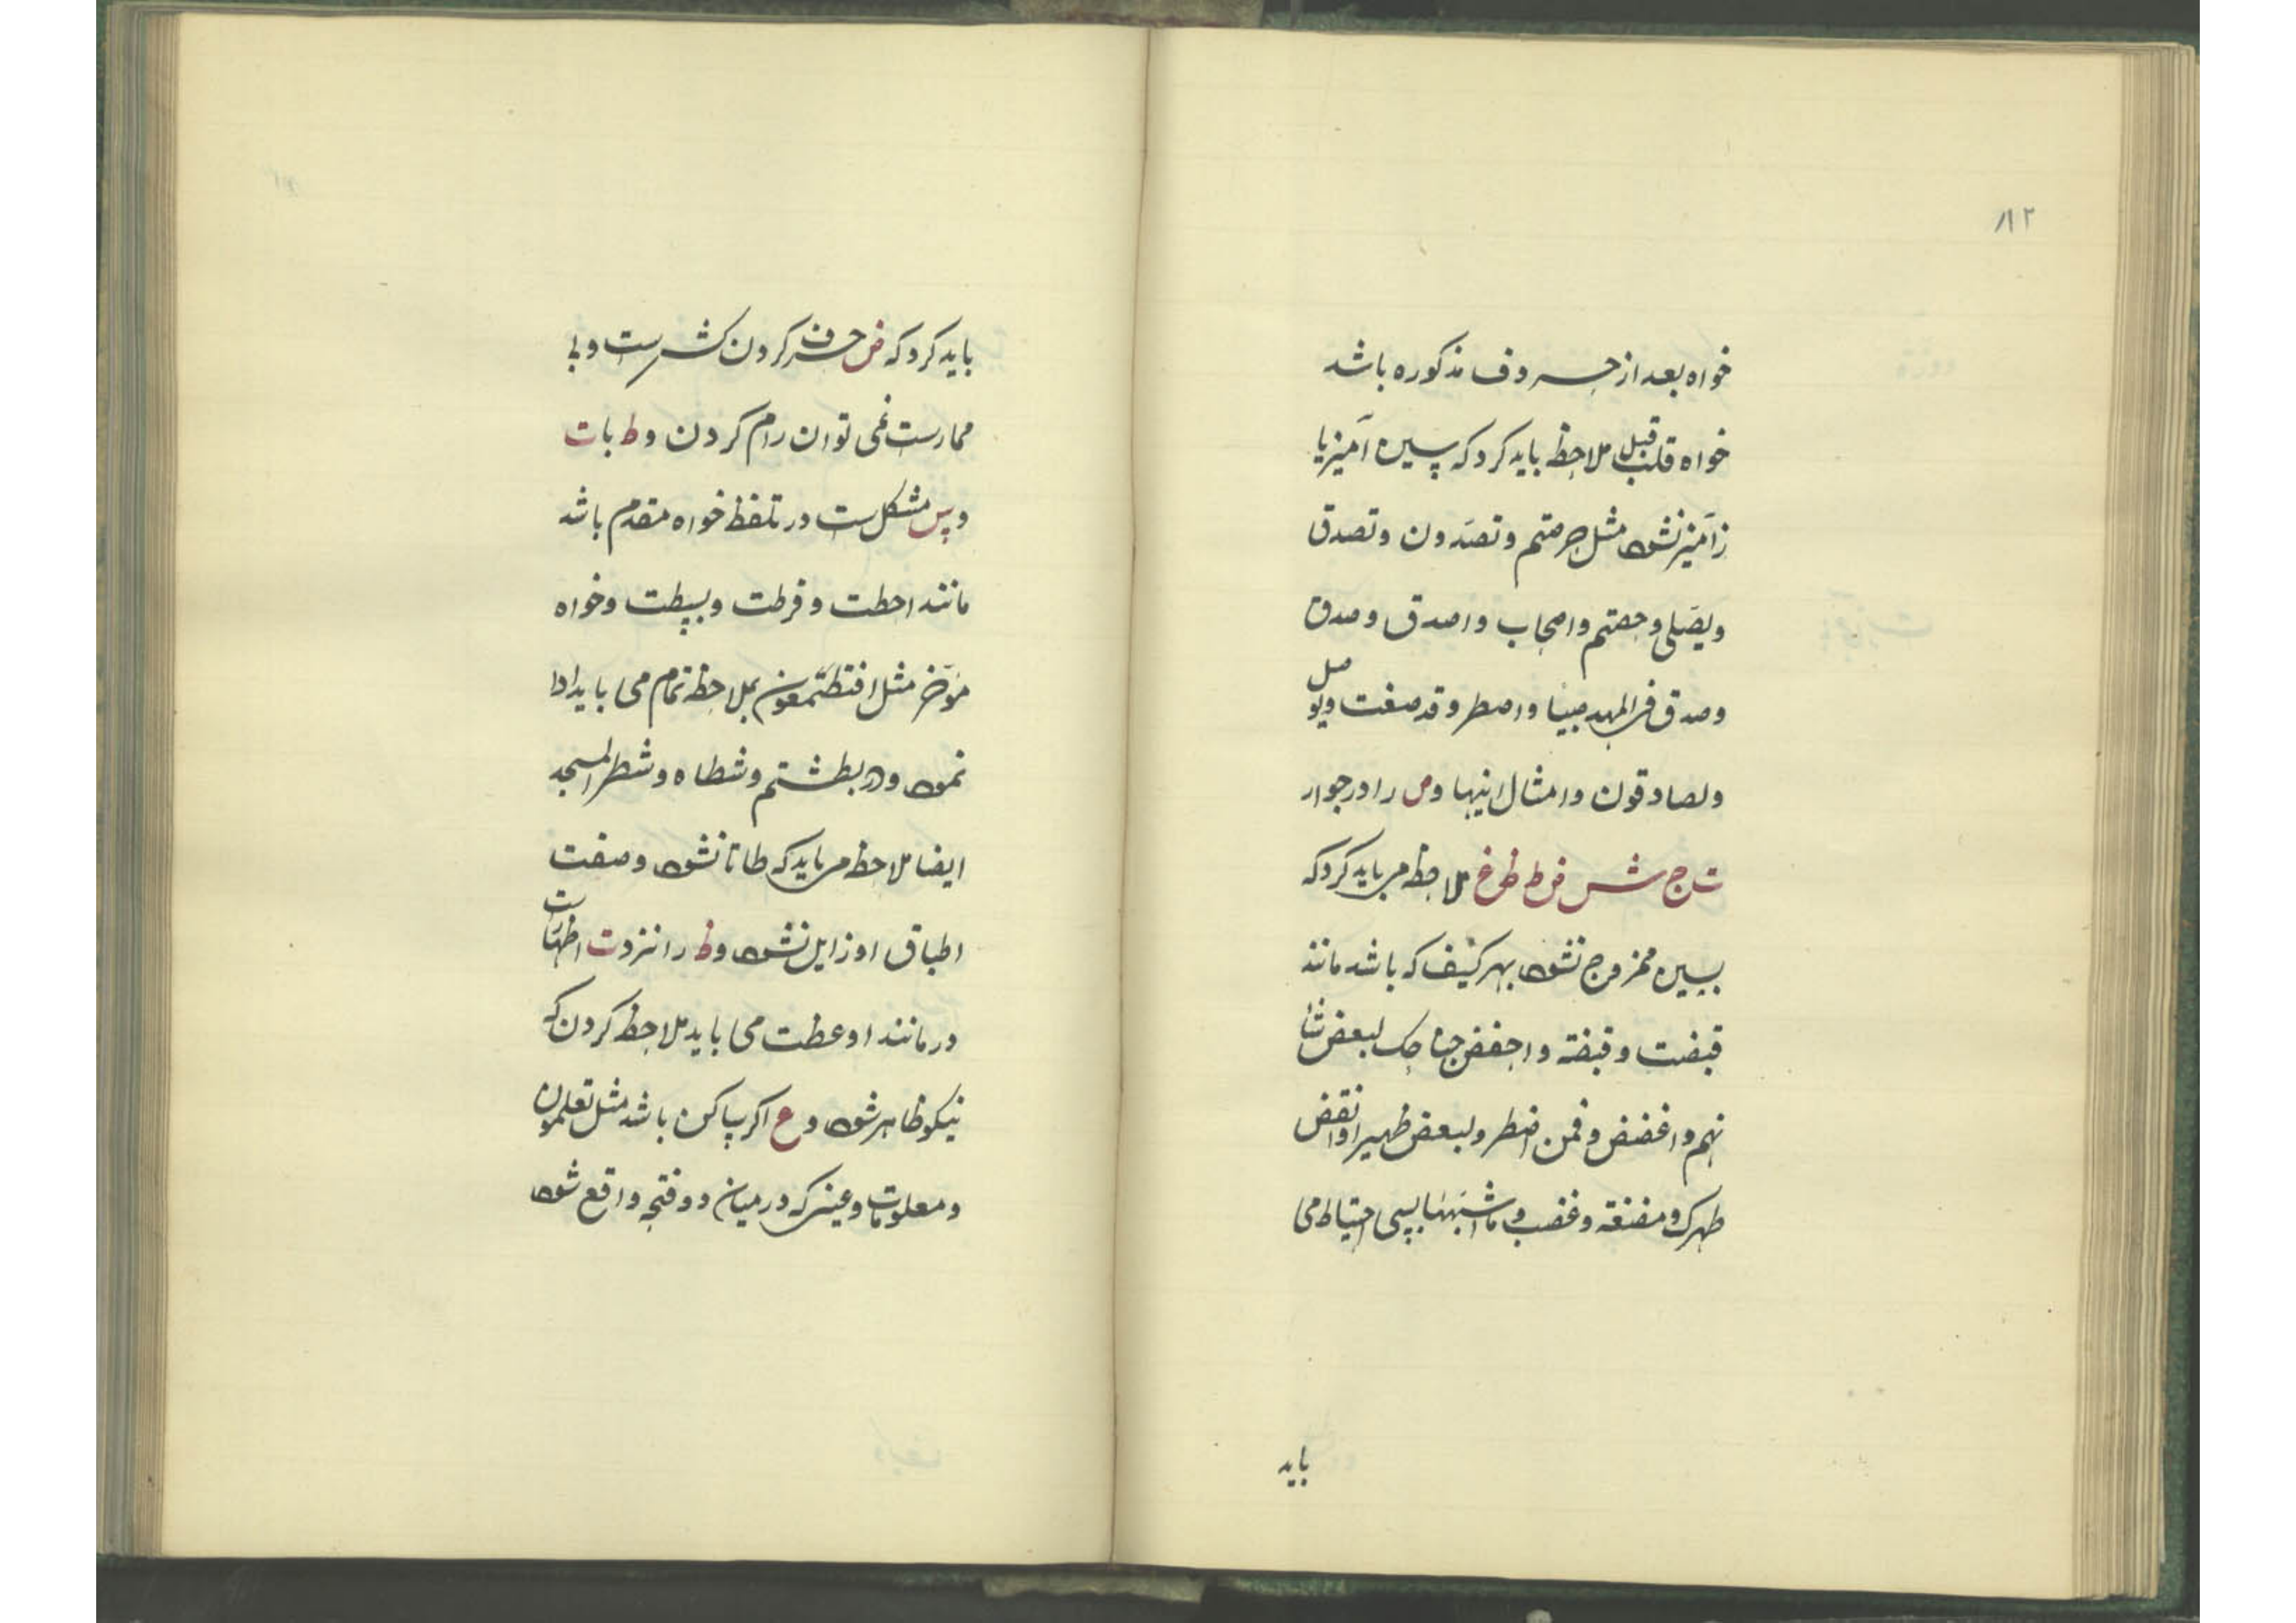 ۱۱۲
خواه بعد از حروف مذکوره باشد
خواه قبل ملاحظه باید کرد که سین آمیز یا
زآمیز نشود مثل حرمتم و تصدون و تصدق
ویصلی و حصتم و اصحاب و اصدق و صدق
و صدق فی المهد صبیا و اصطر و قد صغت ویوصل
ولصادقون و امثال اینها و ص را در جوار
ت ج ش س ض ط ظ غ ملاحظه می باید کرد که
بسین ممزوج نشود بهر کیف که باشد مانند
قبضت و قبضة و اخفض جناحک لبعض شا
نهم و اغضض و فمن اضطر ولبعض ظهیرا و انقض
ظهرک و مضغة و غضب و ما اشبهها بسی احتیاط می
باید
باید کرد که ض حرف کردن کش است و بی
ممارست نمی توان رام کردن و ط با ت
و س مشکل است در تلفظ خواه مقدم باشد
مانند احطت و فرطت و بسطت و خواه
مؤخر مثل افتطمعون بملاحظه تمام می باید ادا
نمود و در بطشتم و شطاه و شطر المسجد
ایضا ملاحظه می باید که طا تا نشود و صفت
اطباق او زایل نشود و ظ را نزد ت اظهارست
در مانند اوعظت می باید ملاحظه کردن که
نیکو ظاهر شود و ع اکر ساکن باشد مثل تعلمون
و معلومات و عینی که در میان دو فتحه واقع شود